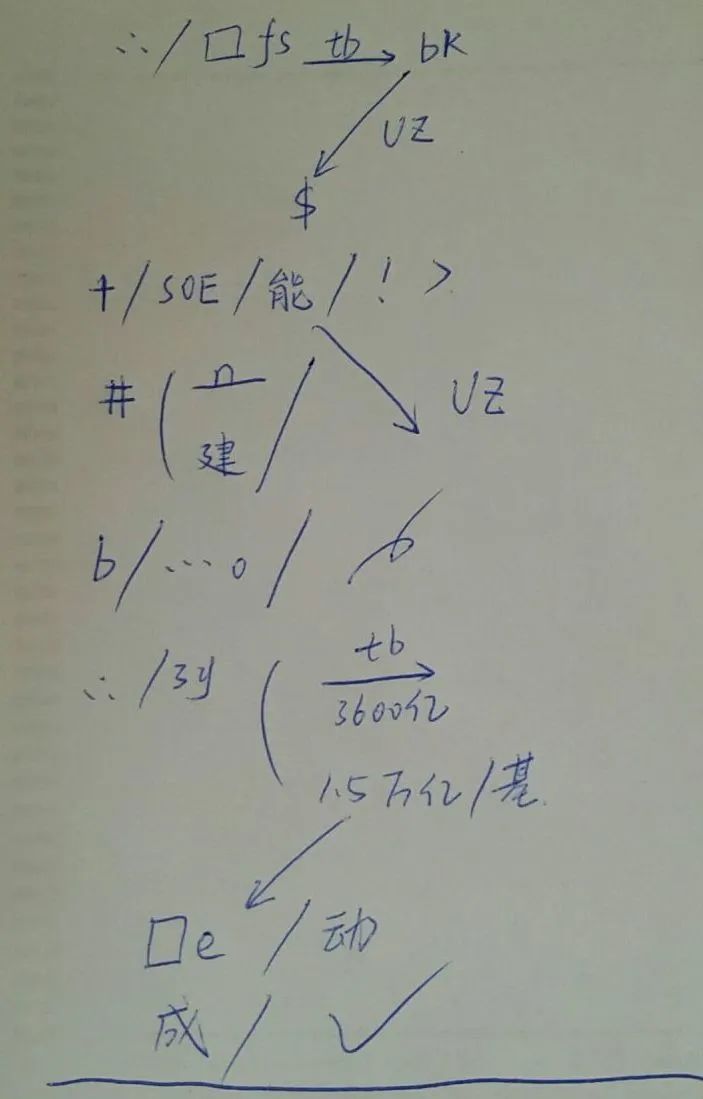 ∴/□fs tb→ bk
UZ
$
+/SOE/能/!>
#(n
建/
UZ
b/...o/
∴/3y(tb→
3600亿
1.5万亿/基
□e/动
成/✓